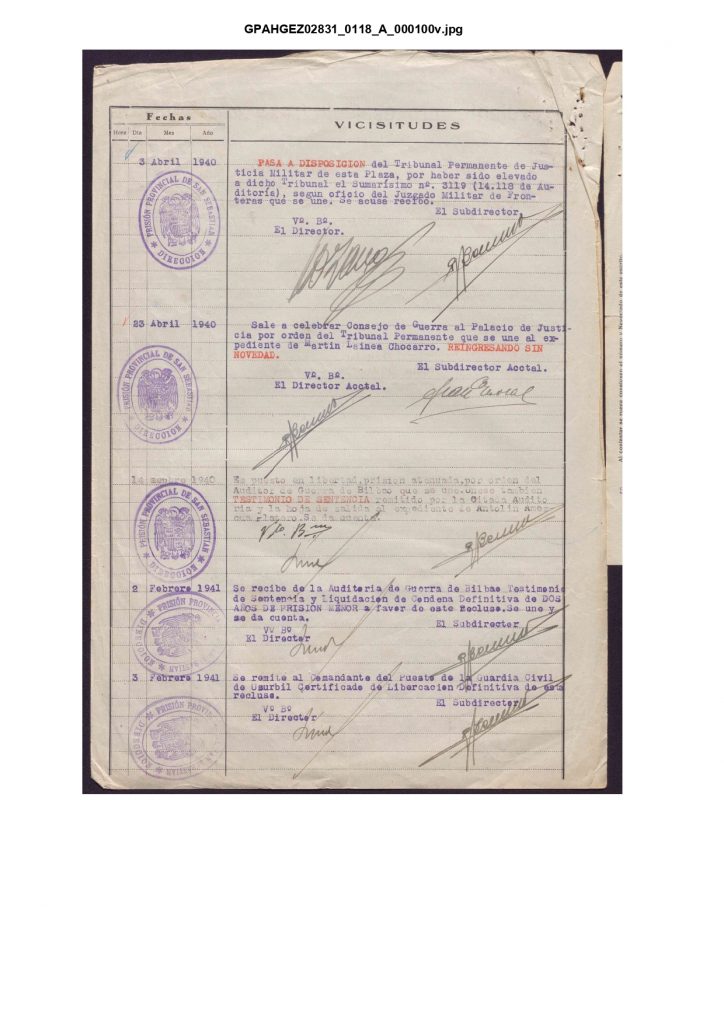 GPAHGEZ02831_0118_A_000100v.jpg
Fechas
Hora Dia Mes Año
VICISITUDES
3 Abril 1940
PASA A DISPOSICION del Tribunal Permanente de Jus-
ticia Militar de esta Plaza, por haber sido elevado
a dicho Tribunal el Sumarísimo nº. 3119 (14.118 de Au-
ditoría), según oficio del Juzgado Militar de Fron-
teras que se une. Se acusa recibo.
El Subdirector
Vº. Bº.
El Director.
PRISIÓN PROVINCIAL DE SAN SEBASTIAN
DIRECCION
23 Abril 1940
Sale a celebrar Consejo de Guerra al Palacio de Justi-
cia por orden del Tribunal Permanente que se une al ex-
pediente de Martin Lainea Chocarro. REINGRESANDO SIN
NOVEDAD.
El Subdirector Acctal.
Vº. Bº.
El Director Acctal.
PRISIÓN PROVINCIAL DE SAN SEBASTIAN
DIRECCION
14 1940
Es puesto en libertad, prision atenuada, por orden del
Auditor de Guerra de Bilbao que se une. tambien
TESTIMONIO DE SENTENCIA remitido por la Citada Audito
ria y la hoja de salida al expediente de Antolin
Platero. Se da cuenta.
Vto. Bno
PRISIÓN PROVINCIAL DE SAN SEBASTIAN
DIRECCION
2 Febrero 1941
Se recibe de la Auditoria de Guerra de Bilbao Testimonio
de Sentencia y Liquidacion de Condena Definitiva de DOS
AÑOS DE PRISIÓN MENOR a favor de este recluso. Se une y
se da cuenta.
El Subdirector
Vº Bº
El Director
PRISIÓN PROVINCIAL DE SAN SEBASTIAN
DIRECCION
3 Febrero 1941
Se remite al Comandante del Puesto de la Guardia Civil
de Usurbil Certificado de Libercacion Definitiva de este
recluso.
El Subdirector
Vº Bº
El Director
PRISIÓN PROVINCIAL DE SAN SEBASTIAN
DIRECCION